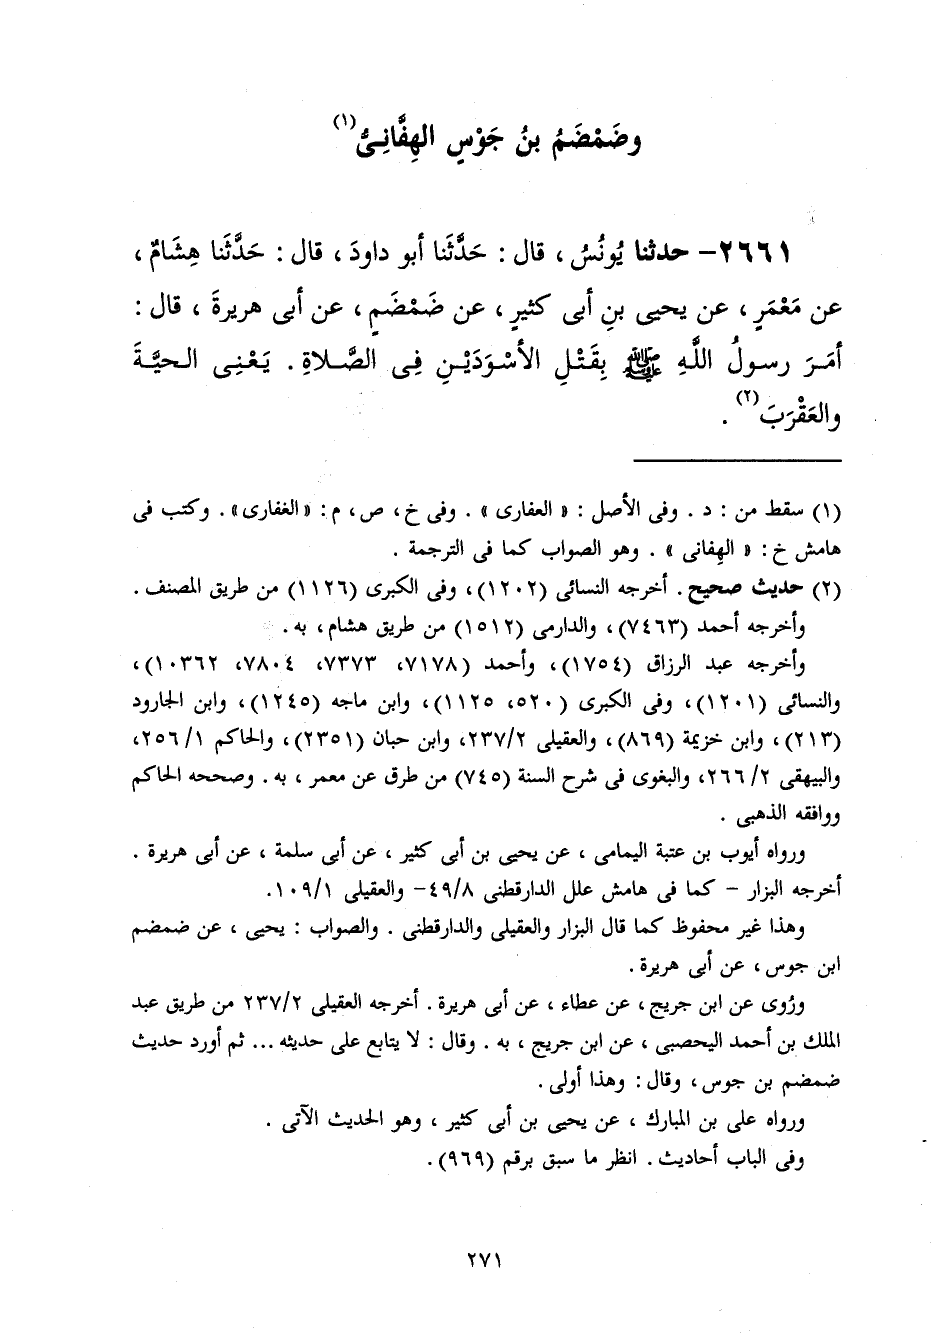 وضَمْضَمُ بنُ جَوْسٍ الهِفَّانِىُّ(١)
٢٦٦١- حدثنا يُونُسُ ، قال : حَدَّثَنا أبو داودَ ، قال : حَدَّثَنا هِشَامٌ ،
عن مَعْمَرٍ ، عن يحيى بنِ أبى كثيرٍ ، عن ضَمْضَمٍ ، عن أبى هريرةَ ، قال :
أمَرَ رسولُ اللَّهِ ﷺ بِقَتْلِ الأسْوَدَيْنِ فِى الصَّلاةِ . يَعْنِى الحيَّةَ
والعَقْرَبَ(٢) .
(١) سقط من : د . وفى الأصل : « العفارى » . وفى خ ، ص ، م : « الغفارى » . وكتب فى
هامش خ : « الهِفانى » . وهو الصواب كما فى الترجمة .
(٢) حديث صحيح . أخرجه النسائى (١٢٠٢) ، وفى الكبرى (١١٢٦) من طريق المصنف .
وأخرجه أحمد (٧٤٦٣) ، والدارمى (١٥١٢) من طريق هشام ، به .
وأخرجه عبد الرزاق (١٧٥٤) ، وأحمد (٧١٧٨، ٧٣٧٣، ٧٨٠٤، ١٠٣٦٢) ،
والنسائى (١٢٠١) ، وفى الكبرى (٥٢٠، ١١٢٥) ، وابن ماجه (١٢٤٥) ، وابن الجارود
(٢١٣) ، وابن خزيمة (٨٦٩) ، والعقيلى ٢٣٧/٢، وابن حبان (٢٣٥١) ، والحاكم ٢٥٦/١،
والبيهقى ٢٦٦/٢، والبغوى فى شرح السنة (٧٤٥) من طرق عن معمر ، به . وصححه الحاكم
ووافقه الذهبى .
ورواه أيوب بن عتبة اليمامى ، عن يحيى بن أبى كثير ، عن أبى سلمة ، عن أبى هريرة .
أخرجه البزار - كما فى هامش علل الدارقطنى ٤٩/٨- والعقيلى ١٠٩/١.
وهذا غير محفوظ كما قال البزار والعقيلى والدارقطنى . والصواب : يحيى ، عن ضمضم
ابن جوس ، عن أبى هريرة .
ورُوى عن ابن جريج ، عن عطاء ، عن أبى هريرة . أخرجه العقيلى ٢٣٧/٢ من طريق عبد
الملك بن أحمد اليحصبى ، عن ابن جريج ، به . وقال : لا يتابع على حديثه ... ثم أورد حديث
ضمضم بن جوس ، وقال : وهذا أولى .
ورواه على بن المبارك ، عن يحيى بن أبى كثير ، وهو الحديث الآتى .
وفى الباب أحاديث . انظر ما سبق برقم (٩٦٩) .
٢٧١